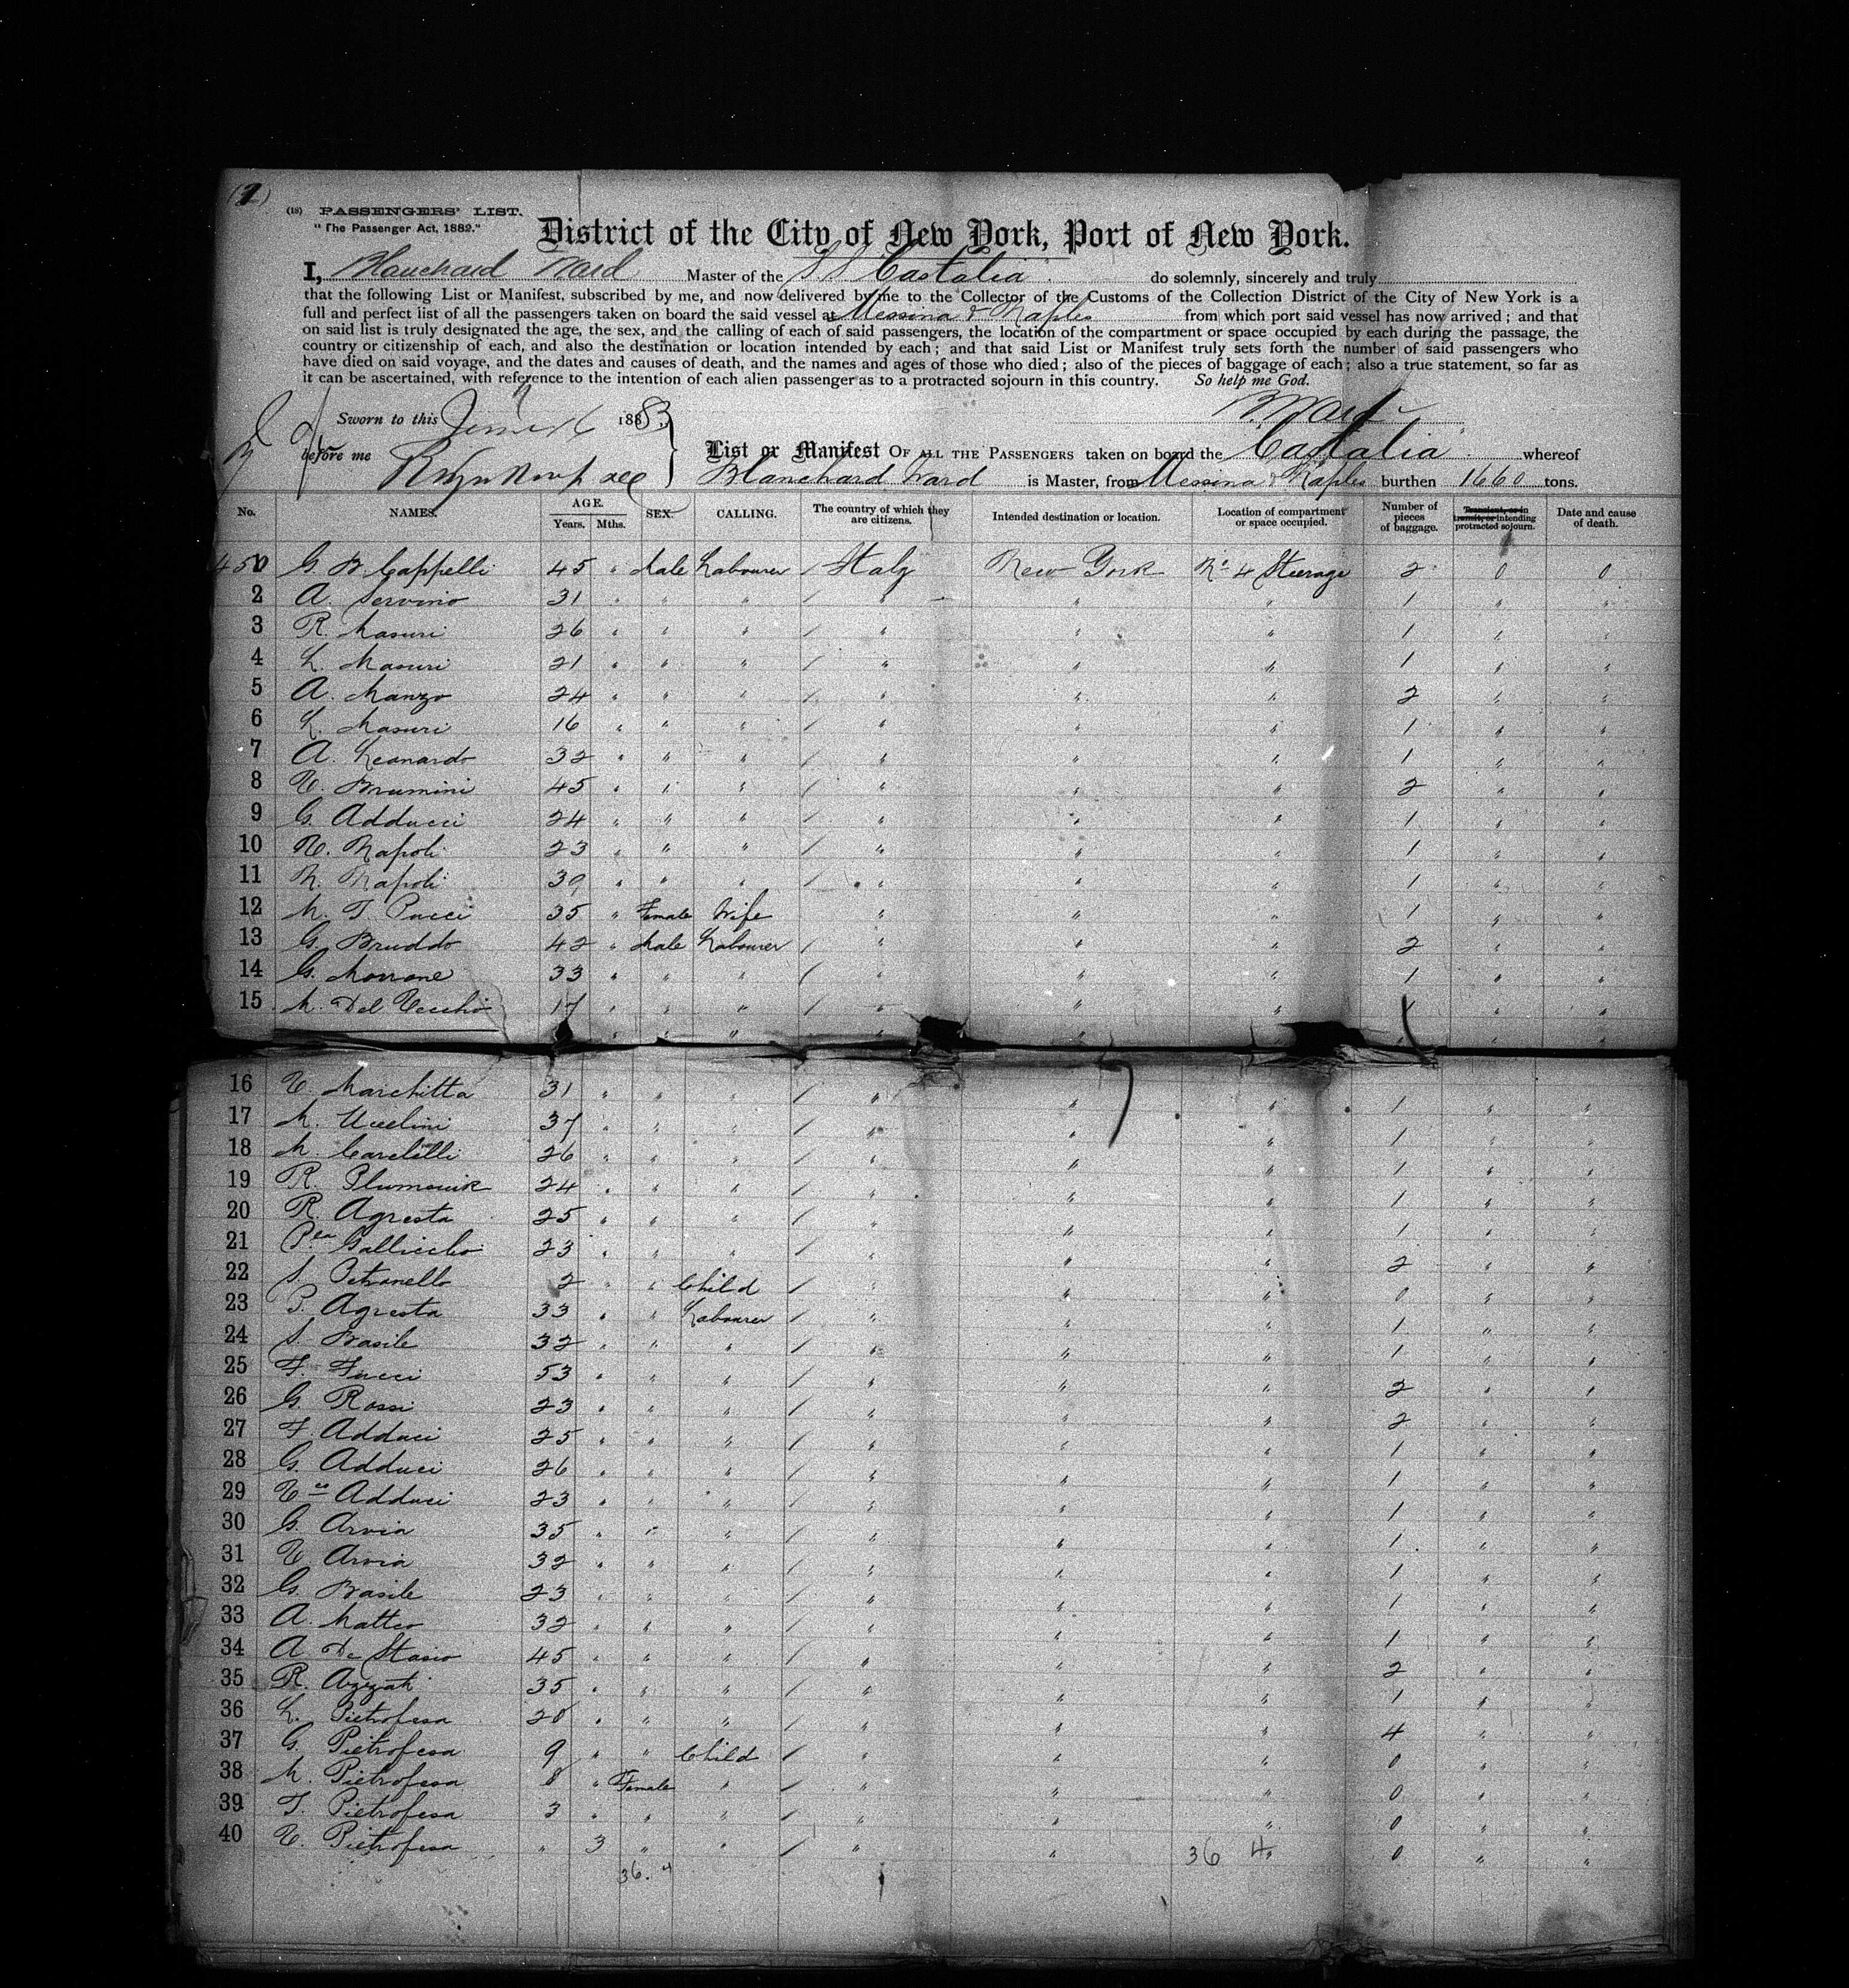 (18) PASSENGERS' LIST.
"The Passenger Act, 1882."
District of the City of New York, Port of New York.
I, Blanchard Ward Master of the S.S. Castalia do solemnly, sincerely and truly
that the following List or Manifest, subscribed by me, and now delivered by me to the Collector of the Customs of the Collection District of the City of New York is a
full and perfect list of all the passengers taken on board the said vessel at Messina & Naples from which port said vessel has now arrived; and that
on said list is truly designated the age, the sex, and the calling of each of said passengers, the location of the compartment or space occupied by each during the passage, the
country or citizenship of each, and also the destination or location intended by each; and that said List or Manifest truly sets forth the number of said passengers who
have died on said voyage, and the dates and causes of death, and the names and ages of those who died; also of the pieces of baggage of each; also a true statement, so far as
it can be ascertained, with reference to the intention of each alien passenger as to a protracted sojourn in this country. So help me God.
Sworn to this June 16 1883 B. Ward
before me List or Manifest OF ALL THE PASSENGERS taken on board the Castalia whereof
Blanchard Ward is Master, from Messina & Naples burthen 1660 tons.
No. NAMES. AGE. Years. Mths. SEX. CALLING. The country of which they are citizens. Intended destination or location. Location of compartment or space occupied. Number of pieces of baggage. Transient, or in transit, or intending protracted sojourn. Date and cause of death.
G. B. Cappelli 45 " Male Labourer / Italy New York No 4 Steerage 2 0 0
2 A. Servino 31 " " " / " " " 1 " "
3 R. Masuri 26 " " " / " " " 1 " "
4 L. Masuri 21 " " " / " " " 1 " "
5 A. Manzo 24 " " " / " " " 2 " "
6 L. Masuri 16 " " " / " " " 1 " "
7 A. Leonardo 32 " " " / " " " 1 " "
8 V. Brumini 45 " " " / " " " 2 " "
9 G. Adducci 24 " " " / " " " 1 " "
10 V. Napoli 23 " " " / " " " 1 " "
11 N. Napoli " " " / " " " 1 " "
12 M. T. Pucci 35 " Female Wife " " " 1 " "
13 G. Bruddo 42 " Male Labourer / " " " 2 " "
14 G. Morrone 33 " " " / " " " 1 " "
15 M. Del Vecchio 17 " " " / " " " 1 " "
16 V. Marchitta 31 " " " / " " " 1 " "
17 M. Ucelini 37 " " " / " " " 1 " "
18 M. 26 " " " / " " " 1 " "
19 R. 24 " " " / " " " 1 " "
20 R. Agresta 25 " " " / " " " 1 " "
21 Galliccho 23 " " " / " " " 2 " "
22 S. Petronello 2 " " Child / " " " 0 " "
23 P. Agresta 33 " " Labourer / " " " 1 " "
24 S. Basile 32 " " " / " " " 1 " "
25 F. Fucci 53 " " " / " " " 2 " "
26 G. Rossi 23 " " " / " " " 2 " "
27 F. Adduci 25 " " " / " " " 1 " "
28 G. Adduci 26 " " " / " " " 1 " "
29 Adduci 23 " " " / " " " 1 " "
30 G. Arvia 35 " " " / " " " 1 " "
31 V. Arvia 32 " " " / " " " 1 " "
32 G. Basile 23 " " " / " " " 1 " "
33 A. Matteo 32 " " " / " " " 1 " "
34 A De Stasio 45 " " " / " " " 2 " "
35 R. 35 " " " / " " " 1 " "
36 L. Pietrofesa 28 " " " / " " " 4 " "
37 G. Pietrofesa 9 " " Child / " " " 0 " "
38 M. Pietrofesa 8 " Female " / " " " 0 " "
39 T. Pietrofesa 3 " " " / " " " 0 " "
40 V. Pietrofesa " 3 " " / " " " 0 " "
36. 4 36 4